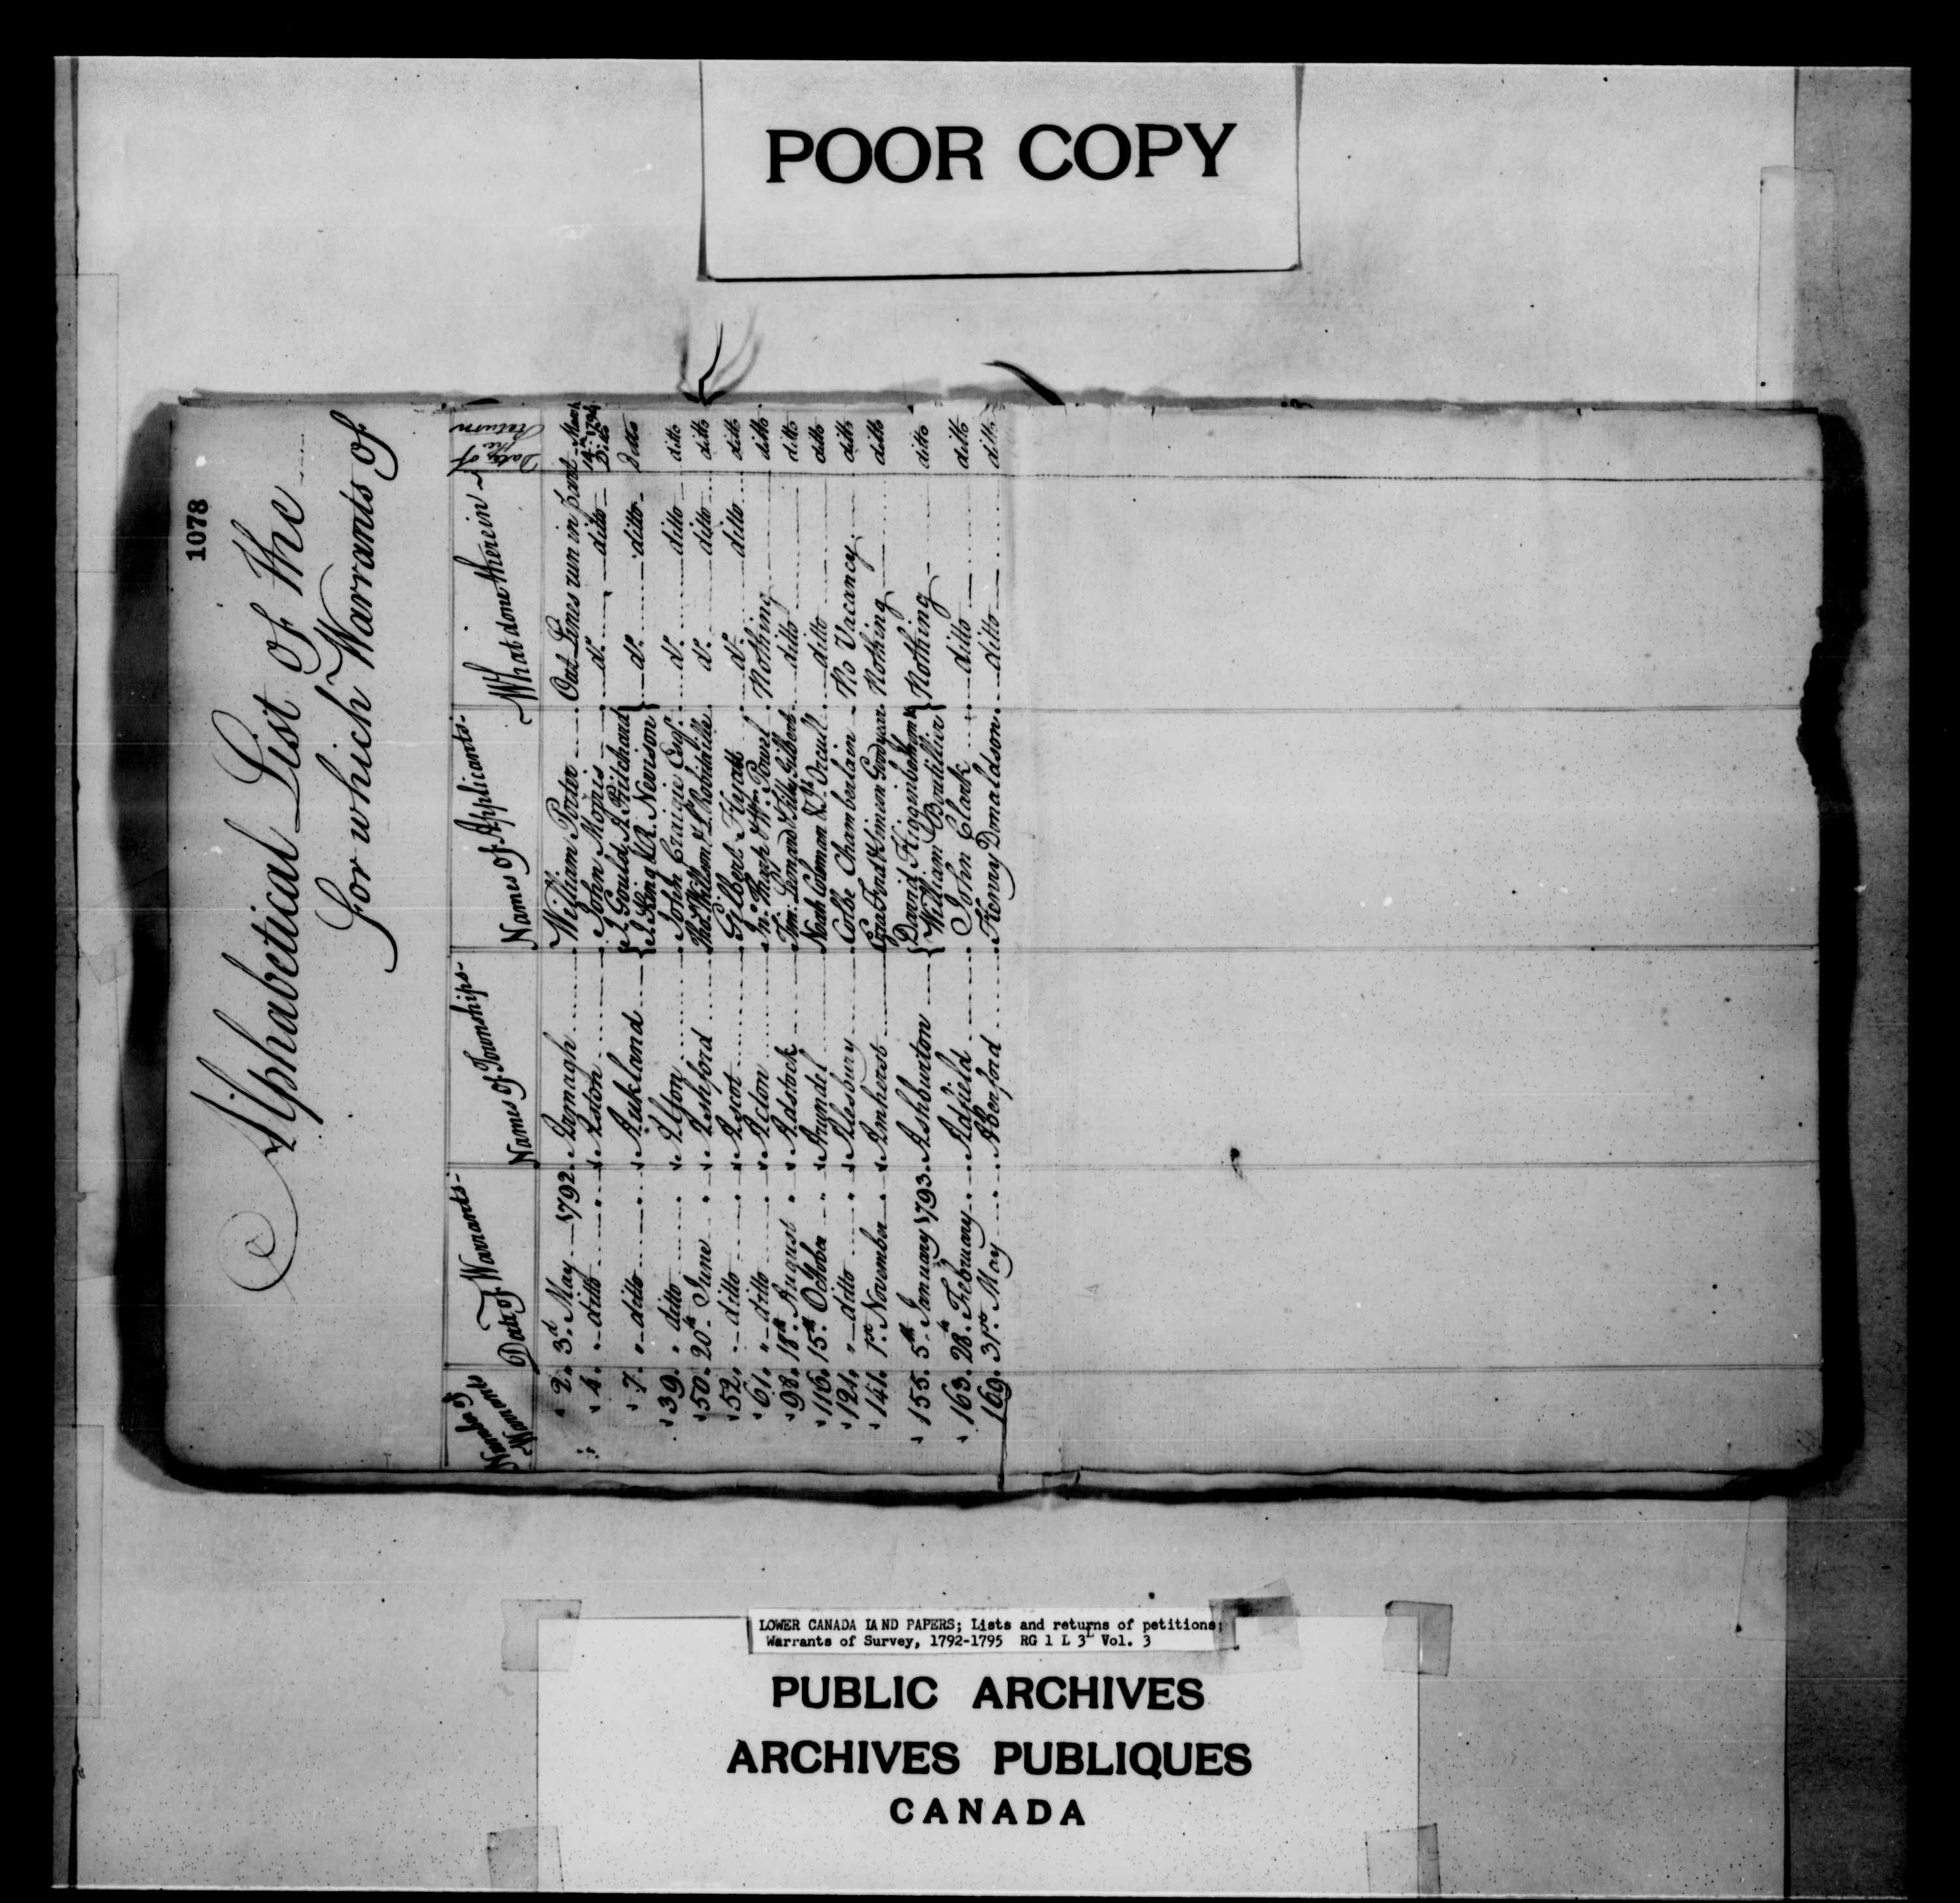 POOR COPY
1078
Alphabetical List of the
for which Warrants of
Number of Warrants Date of Warrants Names of Townships Names of Applicants What done therein Date of the Return
2. 3d May 1792. Armagh William Porter Out Lines run in part March 14th 1794
4. " ditto " Aston John Morris do. ditto Ditto
7. " ditto " Aukland { J. Gould, A. Pritchard
{ J. King & R. Nevison } do. ditto Ditto
39. " ditto " Alton John Craigie Esqr. do. ditto ditto
50. 20th June " Ashford Thos. Willson & L. Robitaille do. ditto ditto
52. " ditto " Ascot Gilbert Hyatt do. ditto ditto
61. " ditto " Acton Jno. Tharp Wm. Powel Nothing ditto
98. 18th August " Adstock Jno. Lemand Tilly Gilbert ditto ditto
116. 15th October " Arundel Noah Coleman & Ths. Orcutt ditto ditto
121. " ditto " Alesbury Colbe Chamberlain No Vacancy ditto
141. 1st November " Amherst Ezra Ford & Simeon Goodyear Nothing ditto
155. 5th January 1793. Ashburton { David Higginbotham &
{ William Boutillier } Nothing ditto
163. 28th February " Adfield John Clark ditto ditto
169. 31st May " Aberford Henry Donaldson ditto ditto
LOWER CANADA LAND PAPERS; Lists and returns of petitions;
Warrants of Survey, 1792-1795 RG 1 L 3L Vol. 3
PUBLIC ARCHIVES
ARCHIVES PUBLIQUES
CANADA